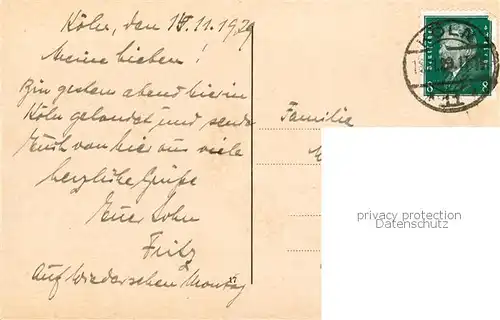 Köln, den 15.11.1929
Meine Lieben!
Bin gestern abend hier in
Köln gelandet und sende
Euch von hier aus viele
herzliche Grüße
Euer Sohn
Fritz
Auf Wiedersehen Montag
Familie
KÖLN
11
DEUTSCHES REICH
8 8
privacy protection
www.oldthing.com